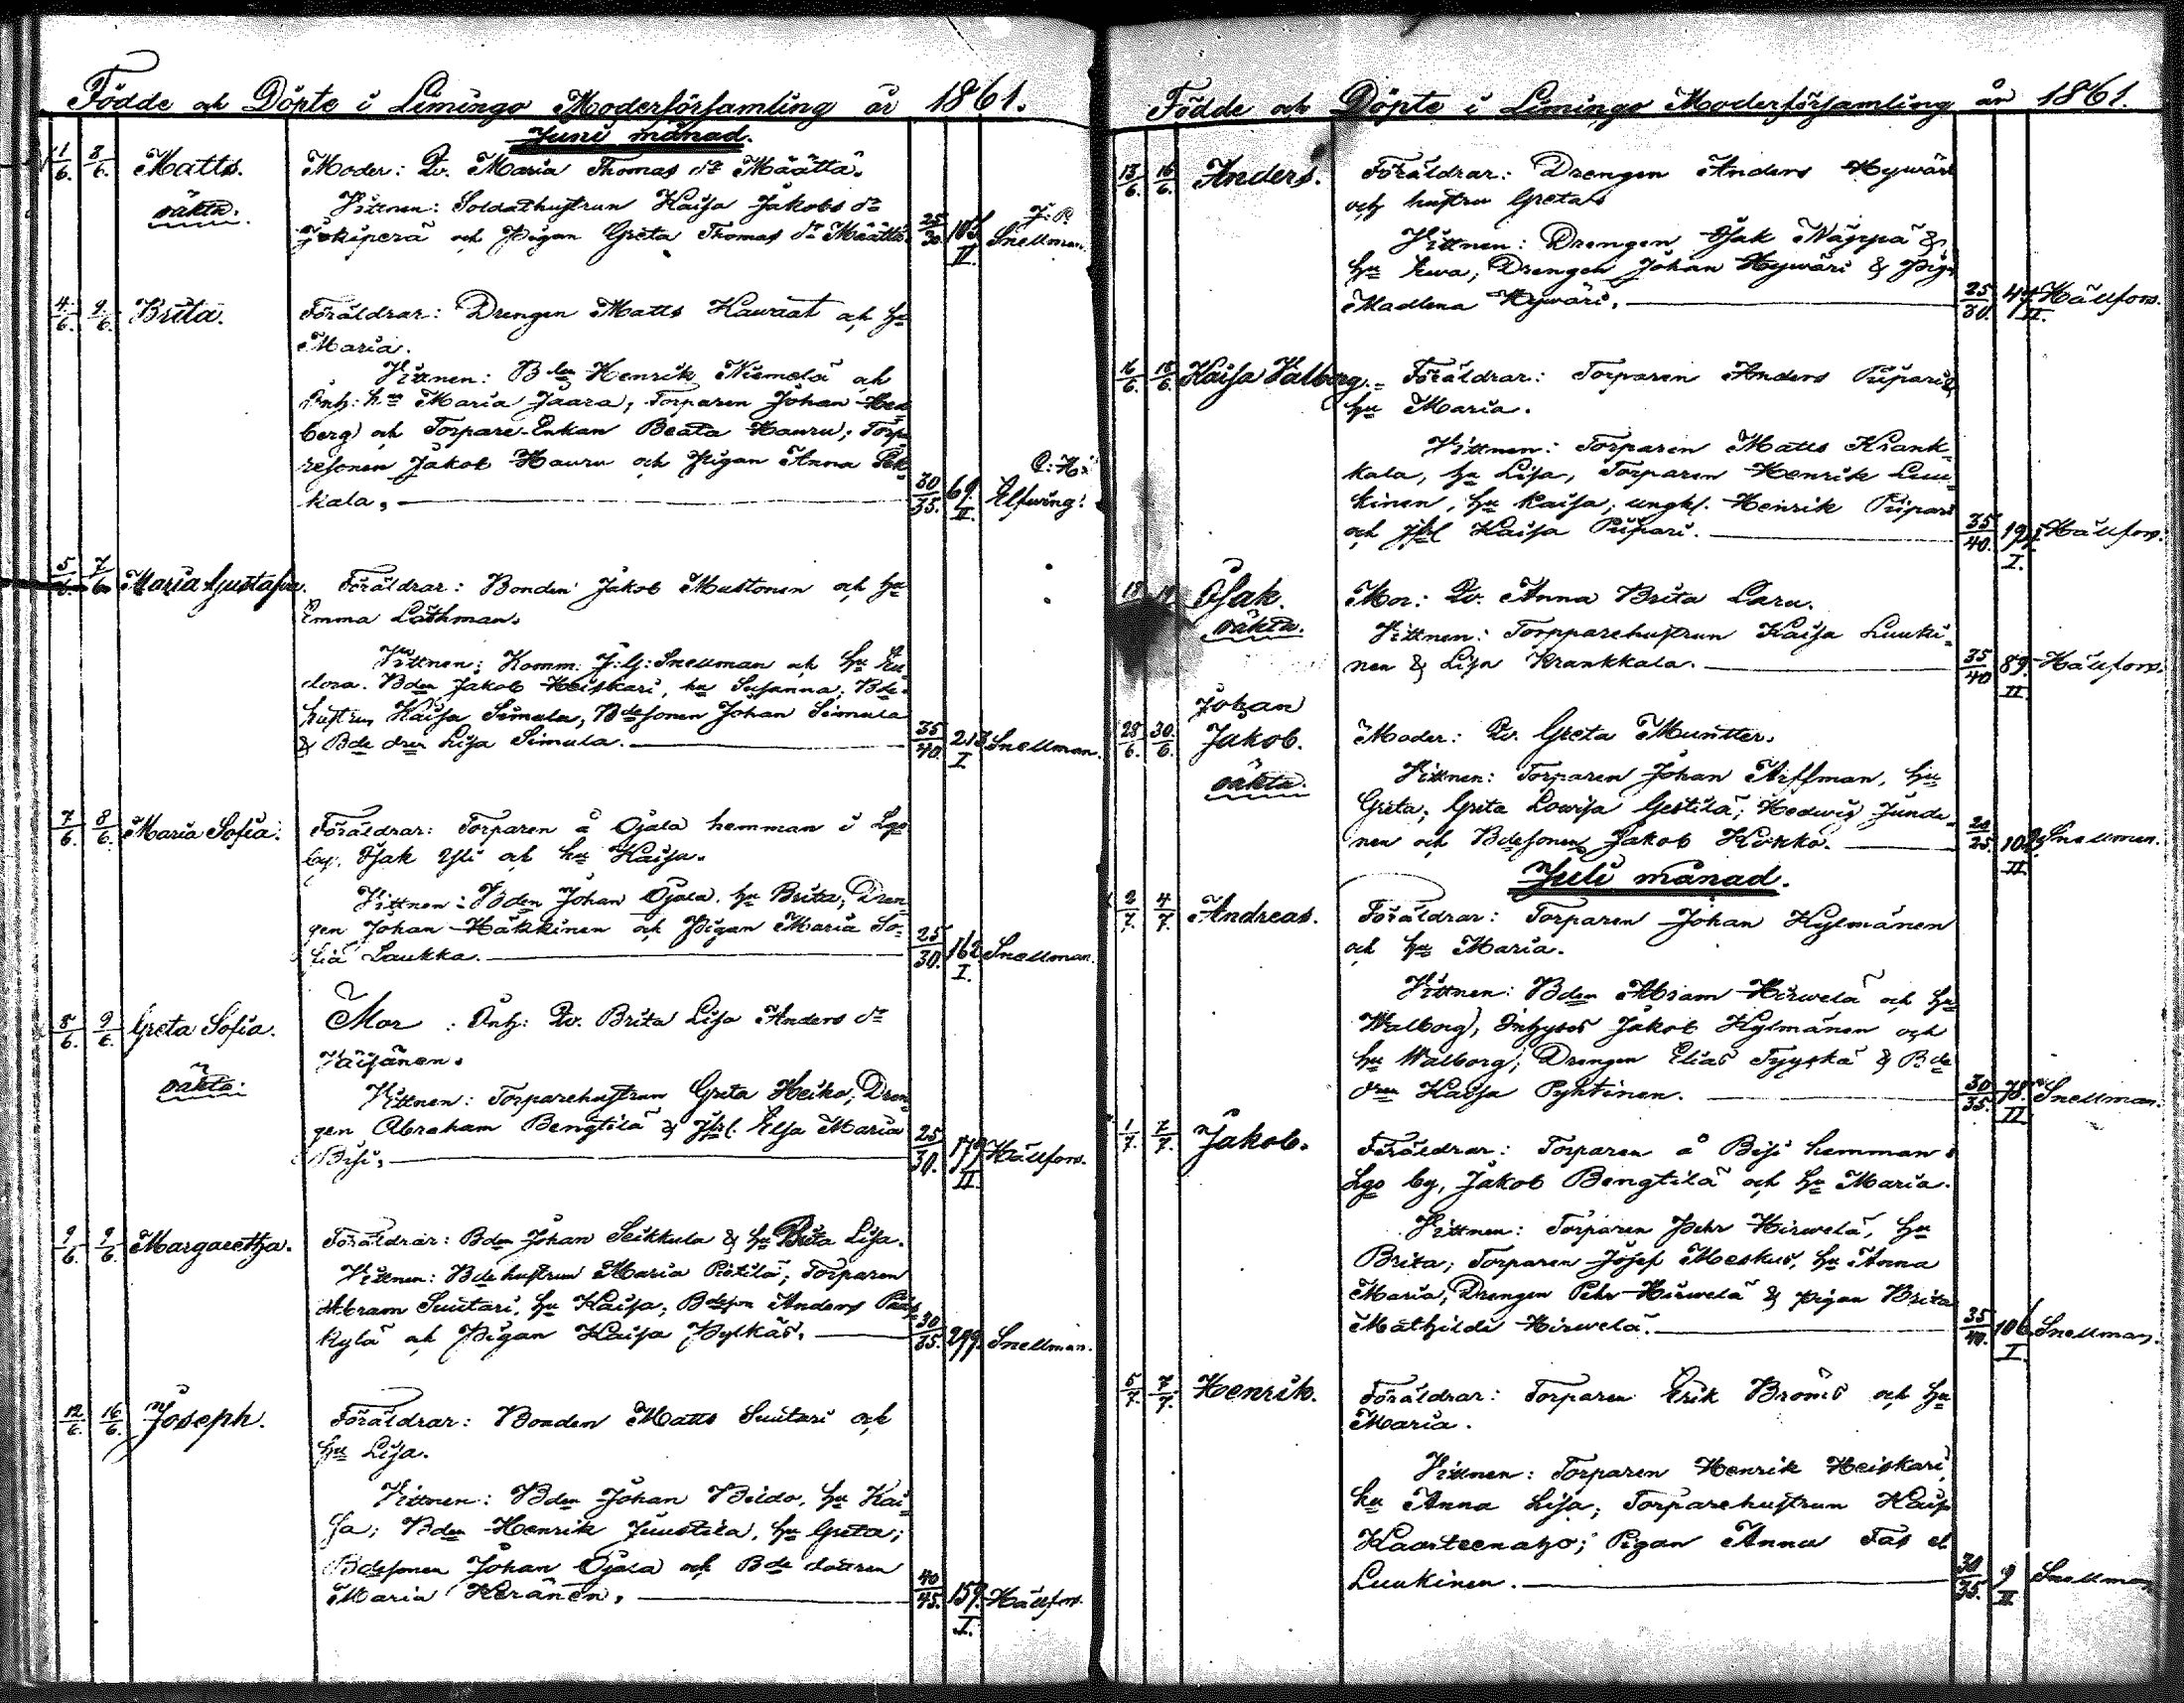 Födde och Döpte i Limingo Moderförsamling år 1861.
Juni månad.
1/6. 3/6. Matts. Moder: Qv. Maria Thomas dr Määttä.
oäkta. Vittnen: Soldathustrun Kaisa Jakobs dr
och Pigan Greta Thomas dr Määttä. 25/30. II J: R: Snellman.
4/6. 9/6. Brita. Föräldrar: Drengen Matts Kawaat och hu
Maria.
Vittnen: Bden Henrik Niemelä och
Inh: hn Maria Jaara; Torparen Johan Hed-
berg och Torpare-Enkan Beata Hauru; Torpa-
resonen Jakob Hauru och Pigan Anna
kala. 30/35. 69. II. Elfving.
5/6. 7/6. Maria Gustafva. Föräldrar: Bonden Jakob Mustonen och hu
Emma Lathman.
Vittnen: Komm. J: G: Snellman och hu Eu-
dora. Bden Jakob Heiskari, hu Susanna; Bde-
hustrun Kaisa Simula; Bdesonen Johan Simula
& Bde dren Lisa Simula. 35/40. 213. I Snellman.
7/6. 8/6. Maria Sofia. Föräldrar: Torparen å Ojala hemman i Lgo
by, Isak Yli och hu Kaisa.
Vittnen: Bden Johan Ojala, hu Brita; Dren-
gen Johan Häkkinen och Pigan Maria So-
fia Laukka. 25/30. 162. I. Snellman.
8/6. 9/6. Greta Sofia. Mor: Inh: Qv. Brita Lisa Anders dr
Väisänen.
oäkta. Vittnen: Torparehustrun Greta Heiko; Dren-
gen Abraham Bengtilä & Jfrl. Elsa Maria
Bisi. 25/30. 179. II Hällfors.
9/6. 9/6. Margaretha. Föräldrar: Bden Johan Seikkula & hu Brita Lisa.
Vittnen: Bdehustrun Maria Pietilä; Torparen
Abram Suutari, hu Kaisa; Bdeson Anders
kylä och Pigan Kaisa Pylkäs. 30/35. 299. Snellman.
12/6. 16/6. Joseph. Föräldrar: Bonden Matts Suutari och
hu Lisa.
Vittnen: Bden Johan Bildo, hu Kai-
sa; Bden Henrik Juustila, hu Greta;
Bdesonen Johan Ojala och Bde dottren
Maria Keränen. 40/45. 159. I. Hällfors.
Födde och Döpte i Limingo Moderförsamling år 1861.
13/6. 16/6. Anders. Föräldrar: Drengen Anders Hywäri
och hustru Greta.
Vittnen: Drengen Isak Wäppä &
hu Ewa; Drengen Johan Hywäri & Pig.
Madlena Hywäri. 25/30. 47. II. Hällfors.
16/6. 18/6. Kaisa Valborg. Föräldrar: Torparen Anders Piipari &
hu Maria.
Vittnen: Torparen Matts Krank-
kala, hu Lisa, Torparen Henrik Luu-
kinen, hu Kaisa; ungk. Henrik Piipari
och Jfrl Kaisa Piipari. 35/40. I. Hällfors.
18 Isak. Mor: Qv. Anna Brita Laru.
oäkta. Vittnen: Torpparehustrun Kaisa Luuki-
nen & Lisa Krankkala. 35/40 89. II Hällfors.
Johan
28/6. 30/6. Jakob. Moder: Qv. Greta Muntter.
oäkta. Vittnen: Torparen Johan Arffman, hu
Greta; Greta Lowisa Gestilä; Hedwig Junde-
nen och Bdesonen Jakob Kokko. 20/25. II Snellman.
Juli månad.
2/7. 4/7. Andreas. Föräldrar: Torparen Johan Kylmänen
och hu Maria.
Vittnen: Bden Abram Hirwelä och hu
Walborg; Inhyses Jakob Kylmänen och
hu Walborg; Drengen Elias Tyyskä & Bde
dren Kaisa Pyhtinen. 30/35. 78. II Snellman.
1/7. 7/7. Jakob. Föräldrar: Torparen å Bisi hemman i
Lgo by, Jakob Bengtilä och hu Maria.
Vittnen: Torparen Pehr Hirwelä, hu
Brita; Torparen Josef Meskus, hu Anna
Maria; Drengen Pehr Hirwelä & pigan Brita
Mathilda Hirwelä. 35/40. 106. I. Snellman.
5/7. 7/7. Henrik. Föräldrar: Torparen Erik Broms och hu
Maria.
Vittnen: Torparen Henrik Heiskari,
hu Anna Lisa; Torparehustrun Kaisa
Kaarteenaho; Pigan Anna
Luukinen. 30/35. 9 II Snellman